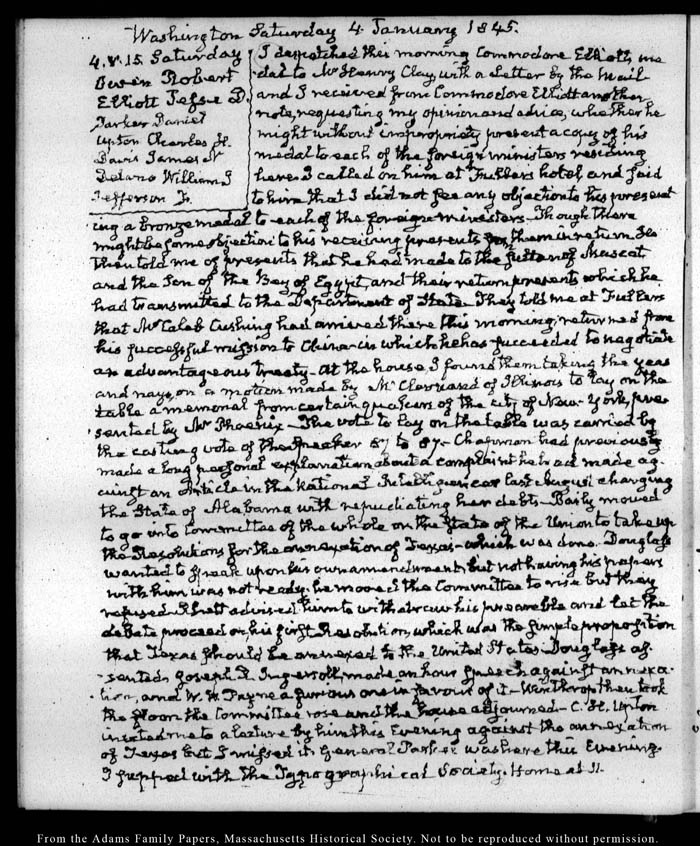 Washington Saturday 4 January 1845.
4. V. 15. Saturday
Owen Robert
Elliott Jesse D.
Parker Daniel
Upton Charles H.
Davis James N
Delano William J
Jefferson Jr.
I despatched this morning Commodore Elliott's me
dal to Mr Henry Clay, with a Letter by the Mail
and I received from Commodore Elliott another
note, requesting my opinion and advice, whether he
might without impropriety present a copy of his
medal to each of the foreign ministers residing
here. I called on him at Fullers hotel, and said
to him that I did not see any objection to his present
ing a bronze medal to each of the foreign ministers. Though there
might be some objection to his receiving presents from them in return. He
then told me of presents that he had made to the Sultan of Muscat
and the Son of the Bey of Egypt, and their return presents which he
had transmitted to the Department of State. They told me at Fullers
that Mr Caleb Cushing had arrived there this morning, returned from
his successful mission to China in which he has succeeded to negotiate
an advantageous treaty. At the house, I found them taking the yeas
and nays, on a motion made by Mr McClernand of Illinois to lay on the
table a memorial from certain quakers of the city of New-York, pre
sented by Mr Phoenix. The vote to lay on the table was carried by
the casting vote of the Speaker 87 to 87. Chapman had previously
made a long personal explanation about a complaint he had made ag
ainst an Article in the National Intelligencer last August charging
the State of Alabama with repudiating her debts. Baily moved
to go into Committee of the whole on the State of the Union to take up
the Resolutions for the annexation of Texas which was done. Douglass
wanted to speak upon his own amendment, but not having his papers
with him was not ready. he moved the Committee to rise but they
refused. Holt advised him to withdraw his preamble and let the
debate proceed on his first Resolution, which was the simple proposition
that Texas should be annexed to the United States. Douglass as-
sented. Joseph R. Ingersoll, made an hour speech against annexa-
tion, and W. W. Payne a furious one in favour of it. Winthrop then took
the floor. the Committee rose and the house adjourned. C. H. Upton
invited me to a lecture by him this Evening against the annexation
of Texas but I missed it. General Parker was here this Evening.
I supped with the Typographical Society. Home at 11.
From the Adams Family Papers, Massachusetts Historical Society. Not to be reproduced without permission.